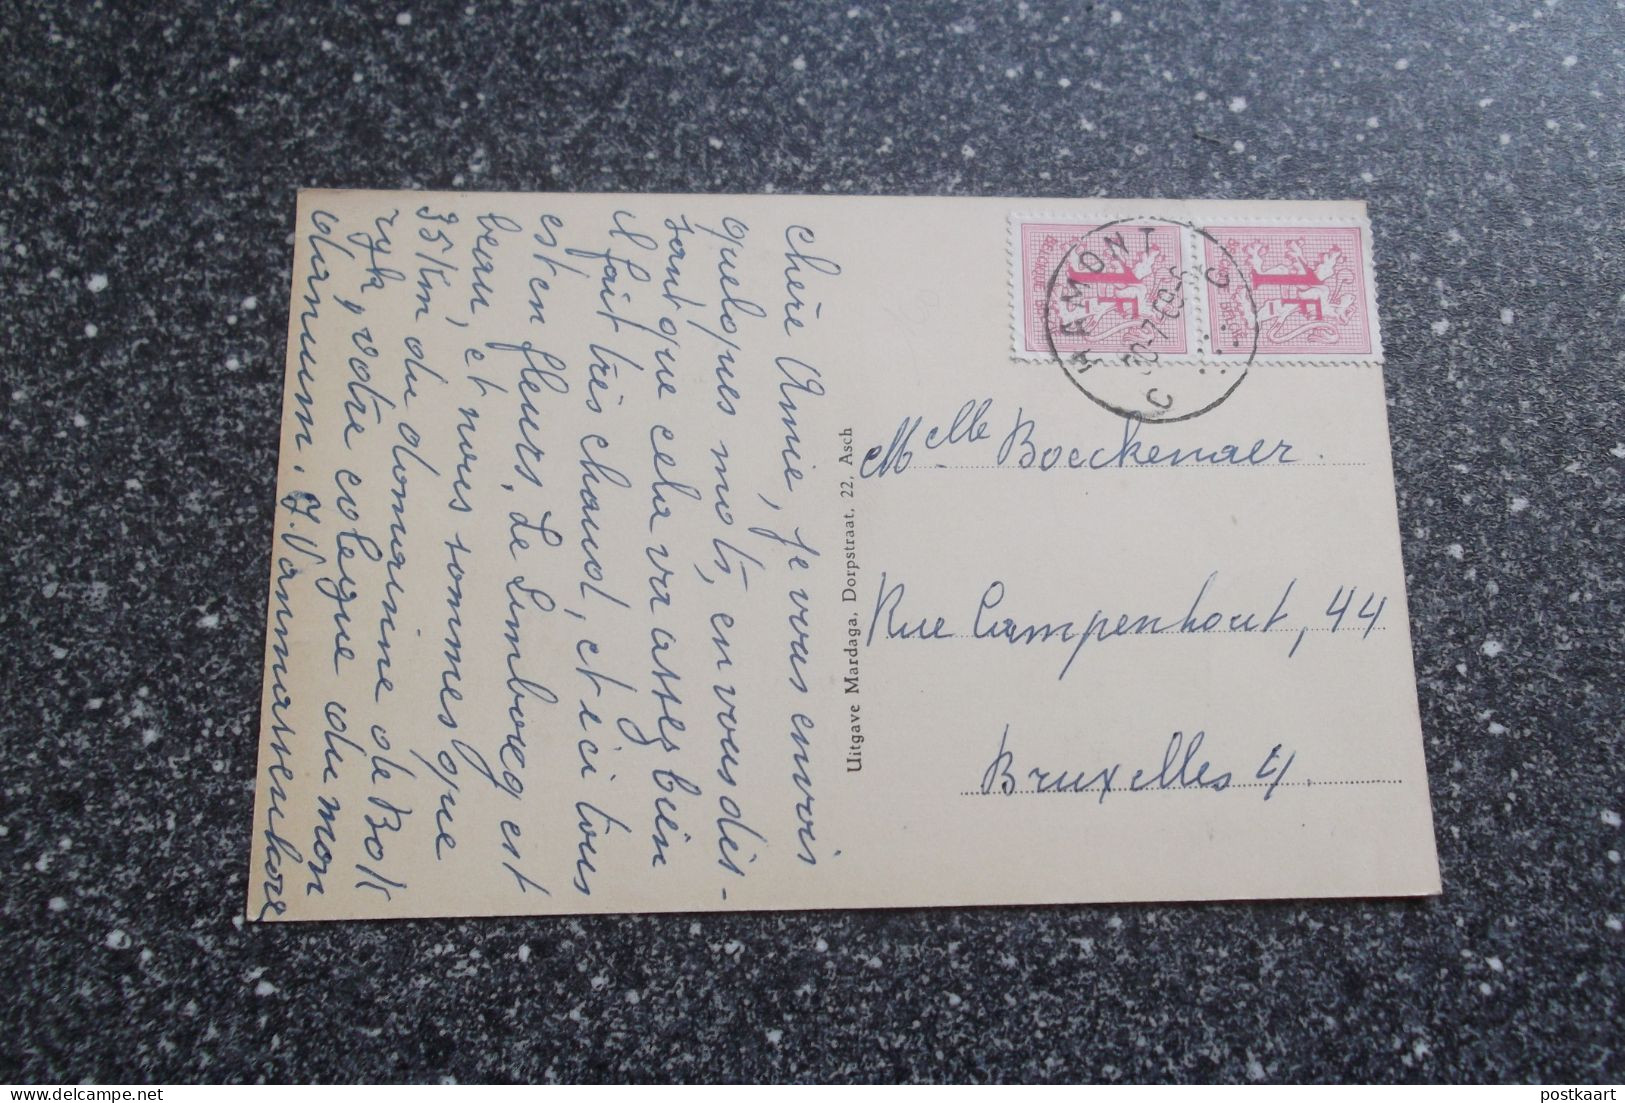 chère Annie, je vous envois
quelques mots, en vous dis-
sant que cela va assez bien
il fait très chaud, et ici tous
est en fleurs. Le Limbourg est
beau, et nous sommes que
35 Km du domaine de Bok
ryk, votre collègue du mon
Uitgave Mardaga, Dorpstraat, 22, Asch
HAMONT
C C
1F
1F
BELGIQUE
Melle Boeckenaer.
Rue Campenhout, 44
Bruxelles 4.
postkaart